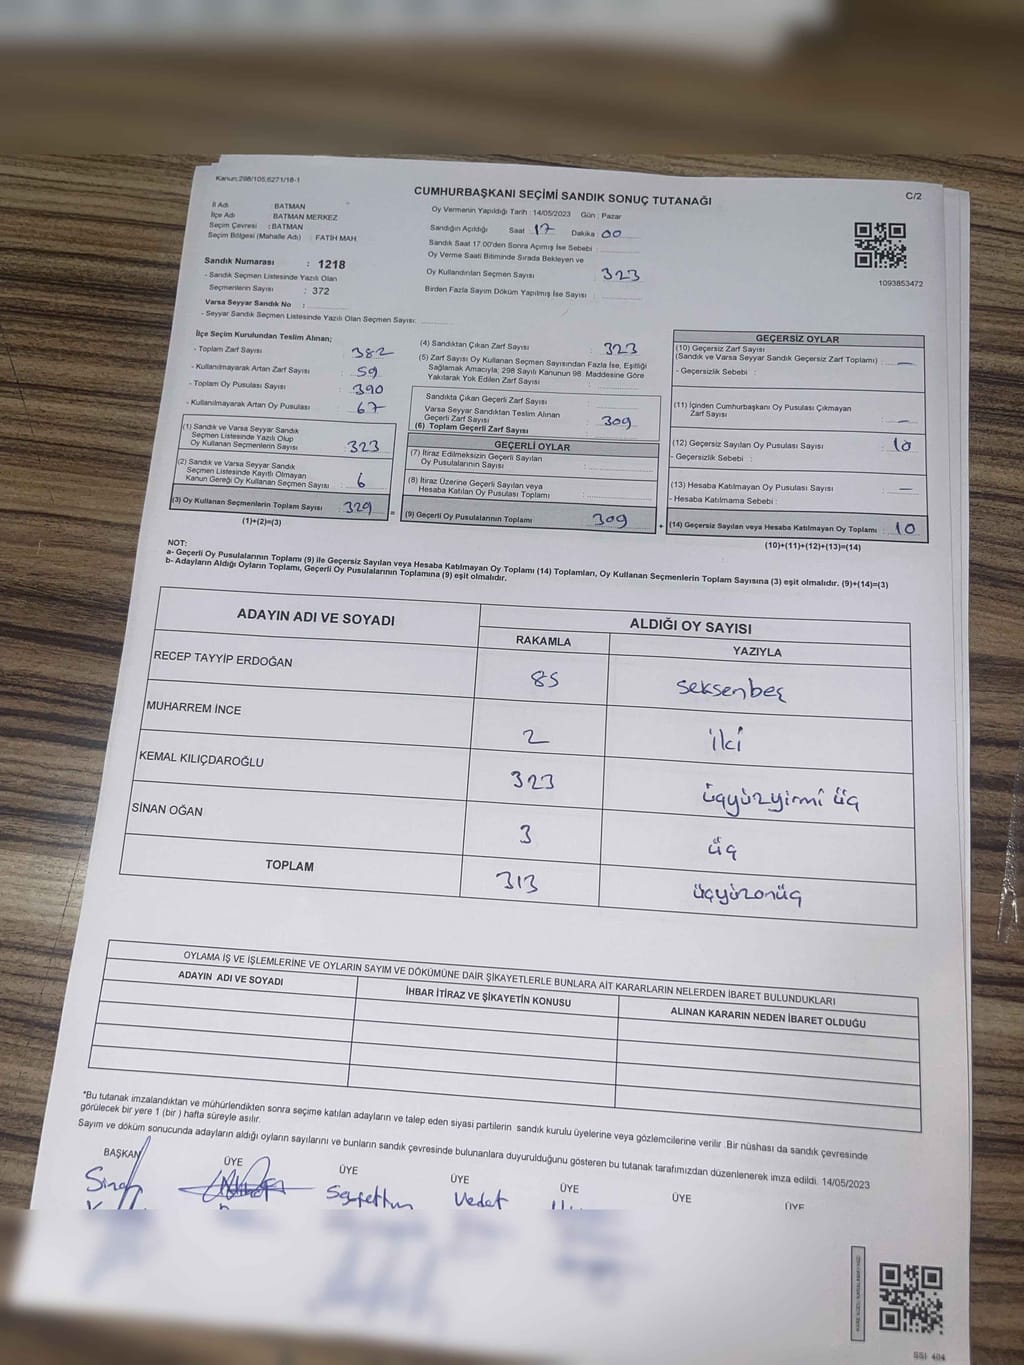 Kanun:298/105,6271/18-1
CUMHURBAŞKANI SEÇİMİ SANDIK SONUÇ TUTANAĞI
C/2
İl Adı : BATMAN
İlçe Adı : BATMAN MERKEZ
Seçim Çevresi : BATMAN
Seçim Bölgesi (Mahalle Adı) : FATİH MAH
Sandık Numarası : 1218
- Sandık Seçmen Listesinde Yazılı Olan
Seçmenlerin Sayısı : 372
Varsa Seyyar Sandık No :
- Seyyar Sandık Seçmen Listesinde Yazılı Olan Seçmen Sayısı:
Oy Vermenin Yapıldığı Tarih : 14/05/2023 Gün : Pazar
Sandığın Açıldığı Saat 17 Dakika 00
Sandık Saat 17.00'den Sonra Açımış İse Sebebi :
Oy Verme Saati Bitiminde Sırada Bekleyen ve
Oy Kullandırılan Seçmen Sayısı : 323
Birden Fazla Sayım Döküm Yapılmış İse Sayısı :
1093853472
İlçe Seçim Kurulundan Teslim Alınan;
- Toplam Zarf Sayısı : 382
- Kullanılmayarak Artan Zarf Sayısı : 59
- Toplam Oy Pusulası Sayısı : 390
- Kullanılmayarak Artan Oy Pusulası : 67
(1) Sandık ve Varsa Seyyar Sandık
Seçmen Listesinde Yazılı Olup
Oy Kullanan Seçmenlerin Sayısı : 323
(2) Sandık ve Varsa Seyyar Sandık
Seçmen Listesinde Kayıtlı Olmayan
Kanun Gereği Oy Kullanan Seçmen Sayısı : 6
(3) Oy Kullanan Seçmenlerin Toplam Sayısı : 329
(1)+(2)=(3)
(4) Sandıktan Çıkan Zarf Sayısı : 323
(5) Zarf Sayısı Oy Kullanan Seçmen Sayısından Fazla İse, Eşitliği
Sağlamak Amacıyla; 298 Sayılı Kanunun 98. Maddesine Göre
Yakılarak Yok Edilen Zarf Sayısı :
Sandıkta Çıkan Geçerli Zarf Sayısı :
Varsa Seyyar Sandıktan Teslim Alınan
Geçerli Zarf Sayısı :
(6) Toplam Geçerli Zarf Sayısı : 309
GEÇERLİ OYLAR
(7) İtiraz Edilmeksizin Geçerli Sayılan
Oy Pusulalarının Sayısı :
(8) İtiraz Üzerine Geçerli Sayılan veya
Hesaba Katılan Oy Pusulası Toplamı :
(9) Geçerli Oy Pusulalarının Toplamı 309
=
+
GEÇERSİZ OYLAR
(10) Geçersiz Zarf Sayısı
(Sandık ve Varsa Seyyar Sandık Geçersiz Zarf Toplamı) : —
- Geçersizlik Sebebi :
(11) İçinden Cumhurbaşkanı Oy Pusulası Çıkmayan
Zarf Sayısı : —
(12) Geçersiz Sayılan Oy Pusulası Sayısı : 10
- Geçersizlik Sebebi :
(13) Hesaba Katılmayan Oy Pusulası Sayısı : —
- Hesaba Katılmama Sebebi :
(14) Geçersiz Sayılan veya Hesaba Katılmayan Oy Toplamı : 10
(10)+(11)+(12)+(13)=(14)
NOT:
a- Geçerli Oy Pusulalarının Toplamı (9) ile Geçersiz Sayılan veya Hesaba Katılmayan Oy Toplamı (14) Toplamları, Oy Kullanan Seçmenlerin Toplam Sayısına (3) eşit olmalıdır. (9)+(14)=(3)
b- Adayların Aldığı Oyların Toplamı, Geçerli Oy Pusulalarının Toplamına (9) eşit olmalıdır.
ADAYIN ADI VE SOYADI
ALDIĞI OY SAYISI
RAKAMLA YAZIYLA
RECEP TAYYİP ERDOĞAN 85 seksenbeş
MUHARREM İNCE 2 iki
KEMAL KILIÇDAROĞLU 323 üçyüzyirmi üç
SİNAN OĞAN 3 üç
TOPLAM 313 üçyüzonüç
OYLAMA İŞ VE İŞLEMLERİNE VE OYLARIN SAYIM VE DÖKÜMÜNE DAİR ŞİKAYETLERLE BUNLARA AİT KARARLARIN NELERDEN İBARET BULUNDUKLARI
ADAYIN ADI VE SOYADI İHBAR İTİRAZ VE ŞİKAYETİN KONUSU ALINAN KARARIN NEDEN İBARET OLDUĞU
*Bu tutanak imzalandıktan ve mühürlendikten sonra seçime katılan adayların ve talep eden siyasi partilerin sandık kurulu üyelerine veya gözlemcilerine verilir .Bir nüshası da sandık çevresinde
görülecek bir yere 1 (bir ) hafta süreyle asılır.
Sayım ve döküm sonucunda adayların aldığı oyların sayılarını ve bunların sandık çevresinde bulunanlara duyurulduğunu gösteren bu tutanak tarafımızdan düzenlenerek imza edildi. 14/05/2023
BAŞKAN ÜYE ÜYE ÜYE ÜYE ÜYE ÜYE
Sinan Seyfettin Vedat
SSI- 404